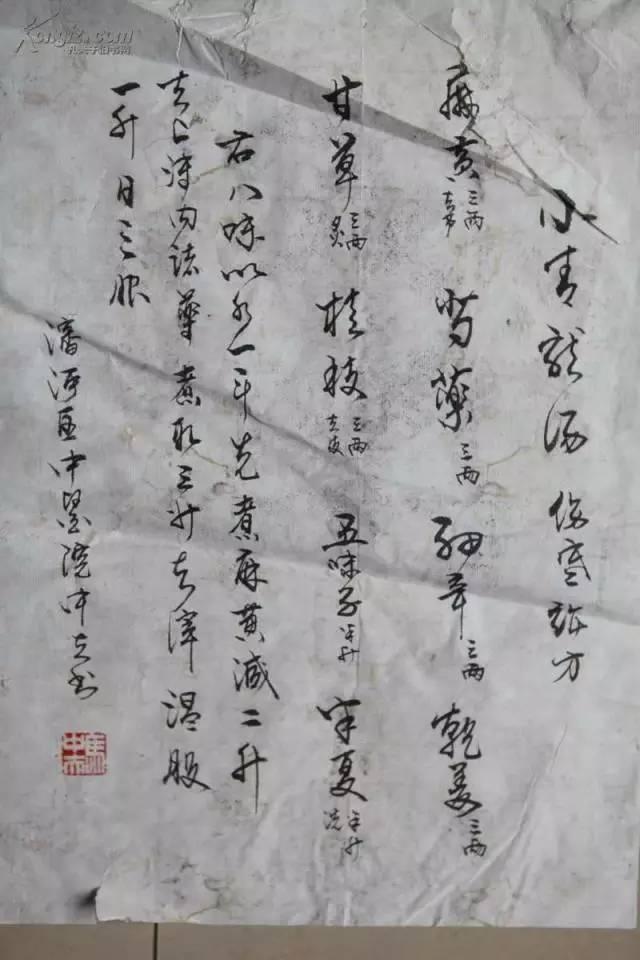 Kongfz.com
孔夫子旧书网
小青龍湯 傷寒論方
麻黄 三两 去節 芍藥 三两 細辛 三两 乾姜 三两
甘草 三两 炙 桂枝 三两 去皮 五味子 半升 半夏 半升 洗
右八味以水一斗先煮麻黄減二升
去上沫内諸藥煮取三升去滓温服
一升日三服
瀍河区中醫院中立书